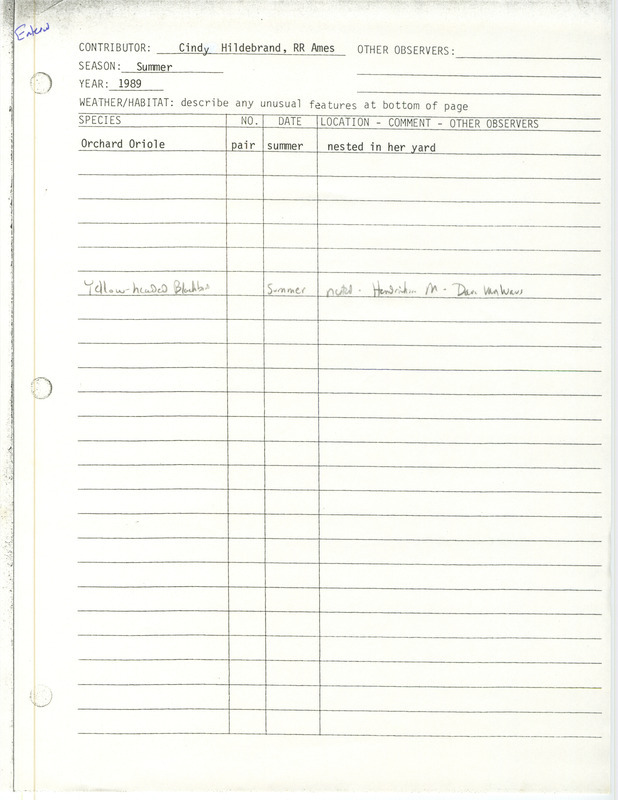 Entered
CONTRIBUTOR: Cindy Hildebrand, RR Ames OTHER OBSERVERS:
SEASON: Summer
YEAR: 1989
WEATHER/HABITAT: describe any unusual features at bottom of page
SPECIES NO. DATE LOCATION - COMMENT - OTHER OBSERVERS
Orchard Oriole pair summer nested in her yard
Yellow-headed Summer nested - M - Dan